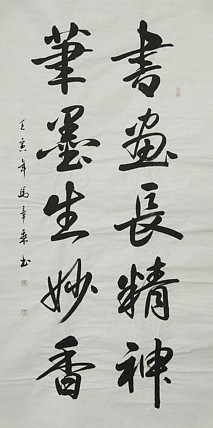 書畫長精神
筆墨生妙香
壬寅年馬幸乗书